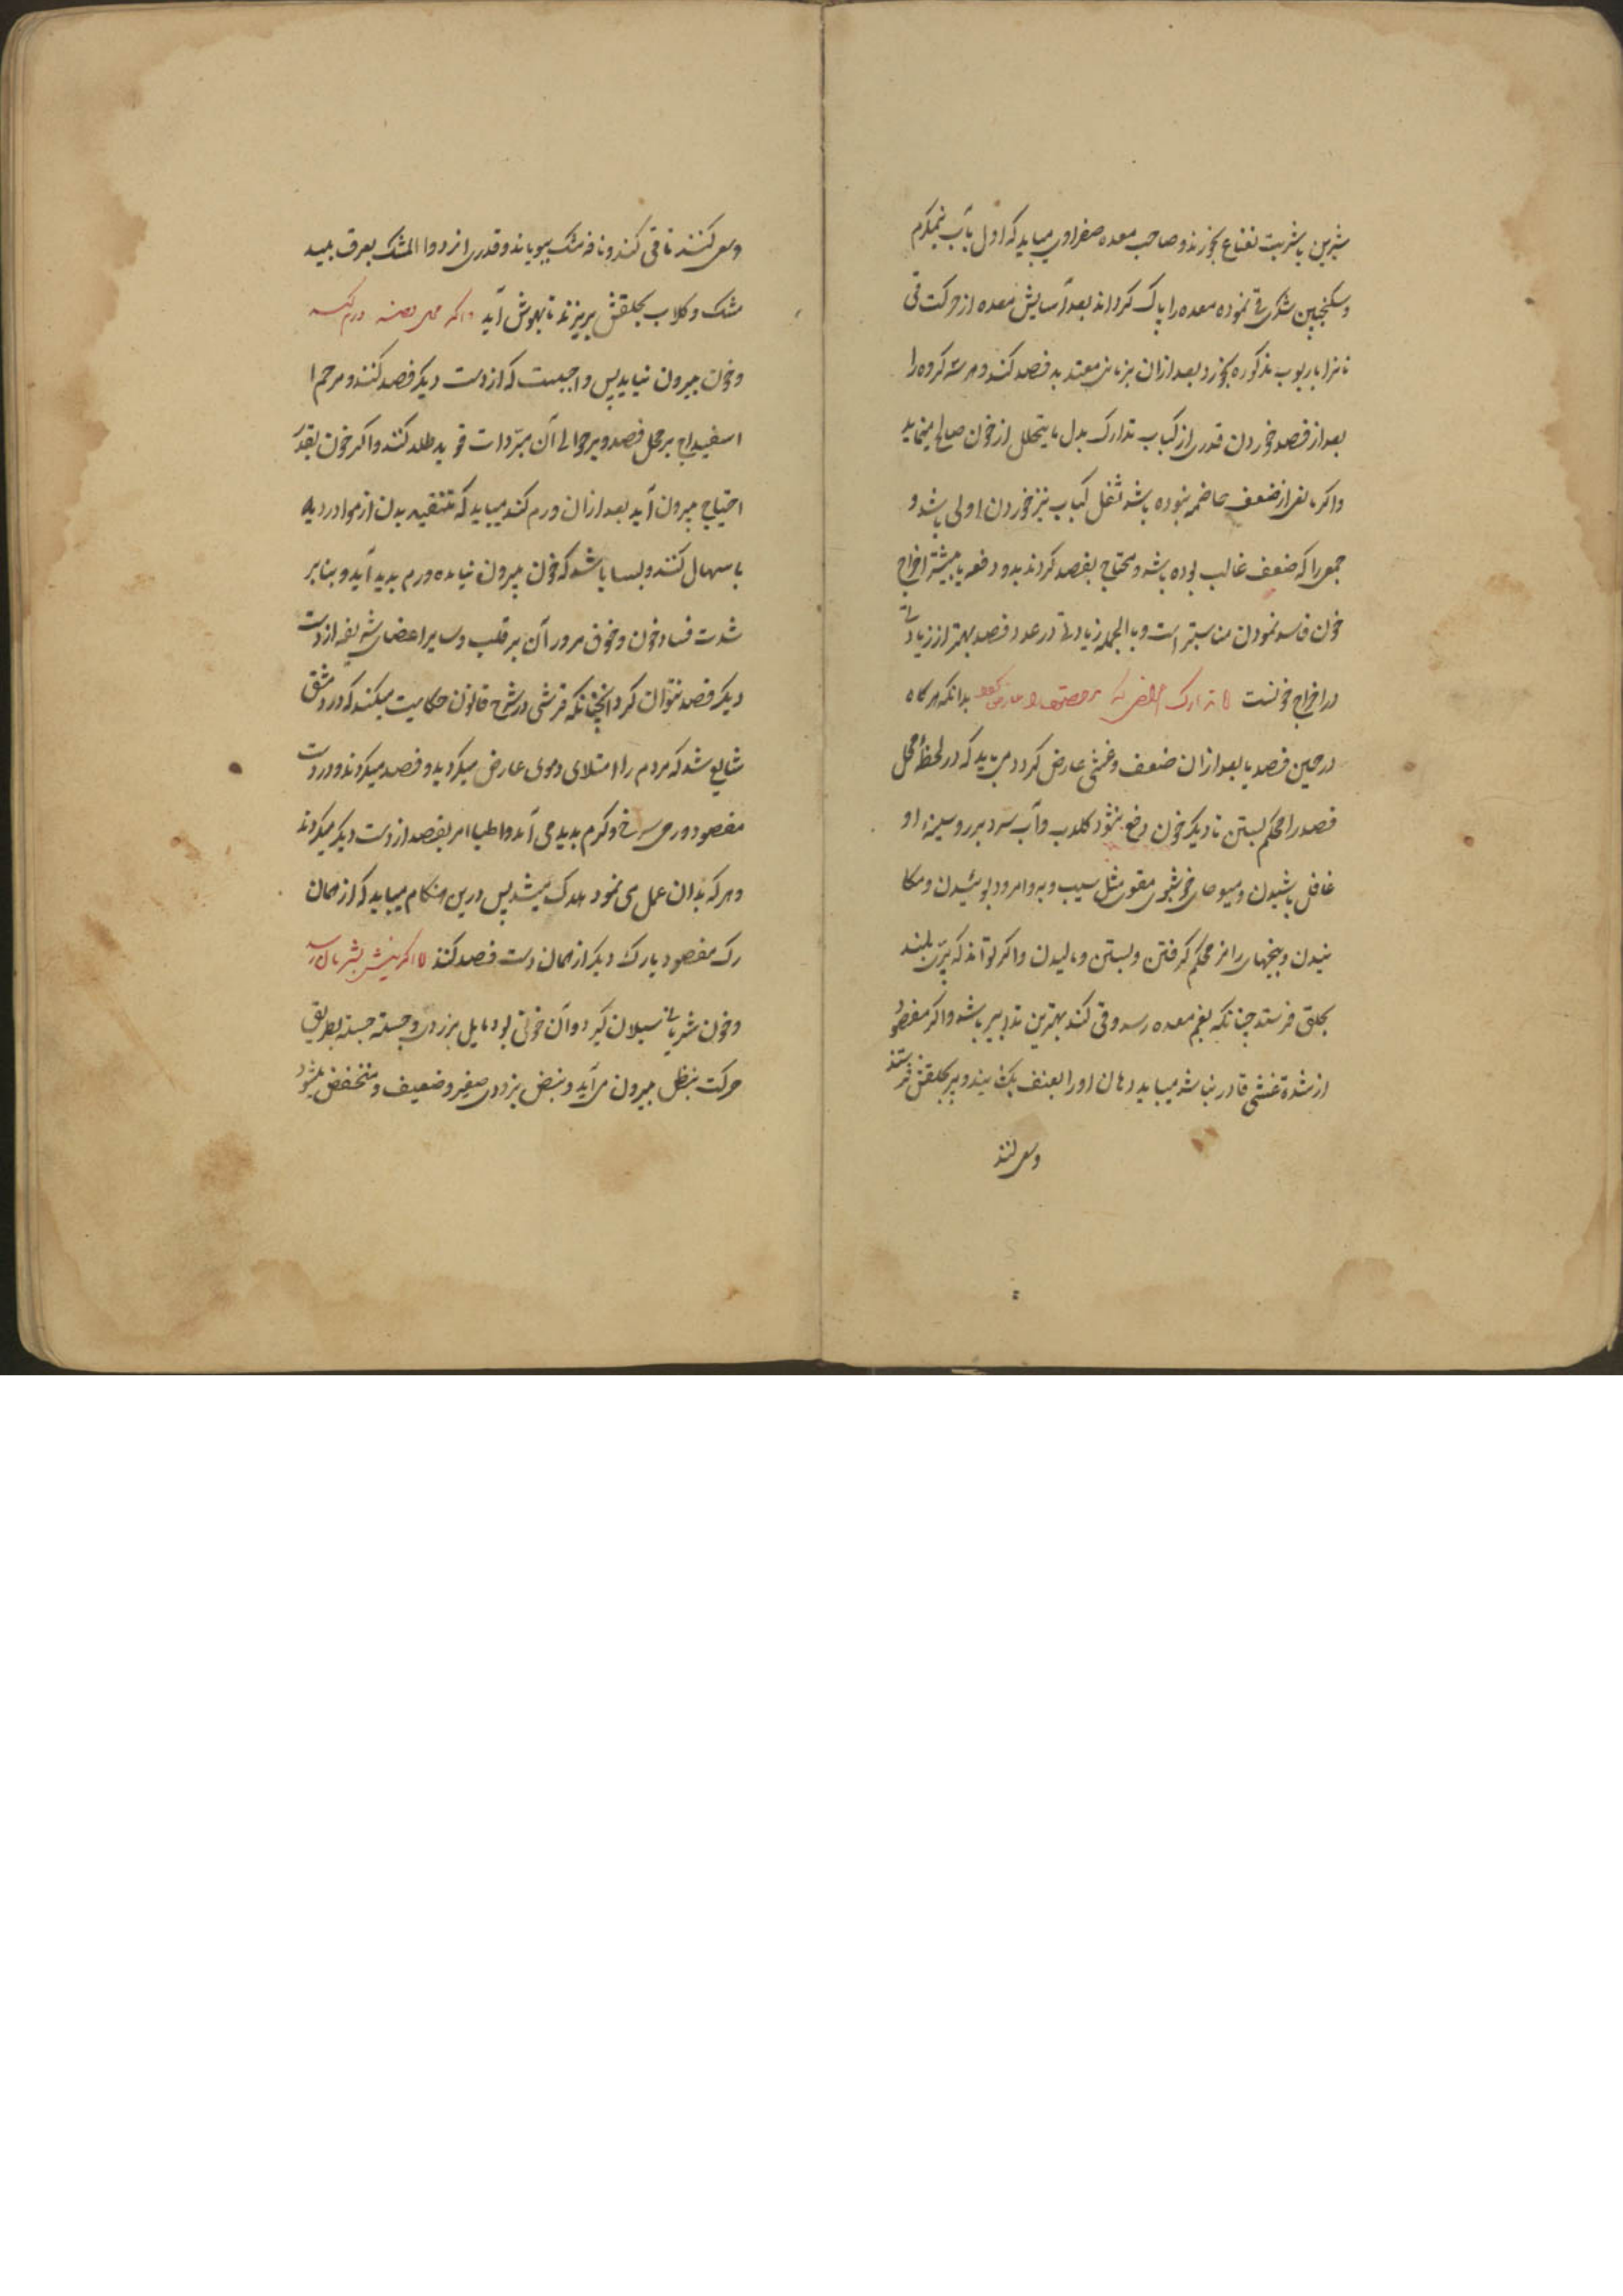 شیرین یا شربت نعناع بخورند و صاحب معده صفراوی میباید که اول بآب نیمگرم
و سکنجبین شکری قی نموده معده را پاک کرداند بعد آسایش معده از حرکت قی
نانرا با ربوب مذکوره بخورد بعد ازان بزمانی معتد به فصد کند و هر سه کروه را
بعد از فصد خوردن قدری از کباب تدارک بدل ما یتحلل از خون صالح مینماید
و اکر مانعی از ضعف هاضمه نبوده باشد ثفل کباب نیز خوردن اولی باشد و
جمعی را که ضعف غالب بوده باشد و محتاج بفصد کردند بدو دفعه یا بیشتر اخراج
خون فاسد نمودن مناسبتر است و بالجمله زیادتی در عدد فصد بهتر از زیادتی
در اخراج خونست تدارک بدانکه هرکاه
در حین فصد یا بعد ازان ضعف و غشی عارض کردد می باید که در لحظه محل
فصد را محکم بستن تا دیکر خون دفع نشود کلاب و آب سرد بر رو و سینه او
غافل پاشیدن و میوهای خوشبوی مقوی مثل سیب و به و امرود بوئیدن و
نیدن و پنجهای را نیز محکم کرفتن و بستن و مالیدن و اکر تواند که پری بلند
بحلق فرستد چنانکه بفم معده رسد و قی کند بهترین تدابیر باشد و اکر مفصود
از شدة غشی قادر نباشد میباید دهان او را بعنف بکشایند و پر بحلقش فرستند
وسعی کنند
وسعی کنند تا قی کند و نافه مشک ببویاند و قدری از دواء المشک بعرق بید
مشک و کلاب بحلقش بریزند تا بهوش آید و اکر محل فصد ورم کند
و خون بیرون نیاید پس واجبست که از دست دیکر فصد کنند و مرهم
اسفیداج بر محل فصد و بر حوالی آن مبردات قویه طلا کنند و اکر خون بقدر
احتیاج بیرون آید بعد ازان ورم کند میباید که تنقیه بدن از مواد ردیه
باسهال کنند و بسا باشد که خون بیرون نیامده ورم پدید آید و بنابر
شدت فساد خون و خوف مرور آن بر قلب و سایر اعضای شریفه از دست
دیکر فصد نتوان کرد انچنانکه قرشی در شرح قانون حکایت میکند که در دمشق
شایع شد که مردم را امتلای دموی عارض میکردید و فصد میکردند و در دست
مفصود ورمی سرخ و کرم پدید می آمد و اطبا امر بفصد از دست دیکر میکردند
و هر که بدان عمل می نمود هلاک میشد پس درین هنکام میباید که از همان
رک مفصود یا رک دیکر از همان دست فصد کنند اکر نیش بشریان رسد
و خون شریانی سیلان کیرد و آن خونی بود مایل بزردی و جسته جسته بطریق
حرکت نبض بیرون می آید و نبض بزودی صغیر و ضعیف و منخفض میشود